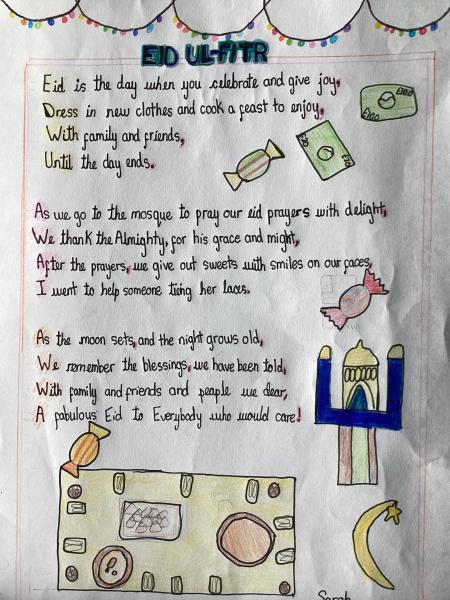 EID UL-FITR
Eid is the day when you celebrate and give joy,
Dress in new clothes and cook a feast to enjoy,
With family and friends,
Until the day ends.
As we go to the mosque to pray our eid prayers with delight,
We thank the Almighty, for his grace and might,
After the prayers, we give out sweets with smiles on our faces,
I went to help someone tieing her laces.
As the moon sets, and the night grows old,
We remember the blessings, we have been told,
With family and friends and people we dear,
A fabulous Eid to Everybody who would care!
Sarah